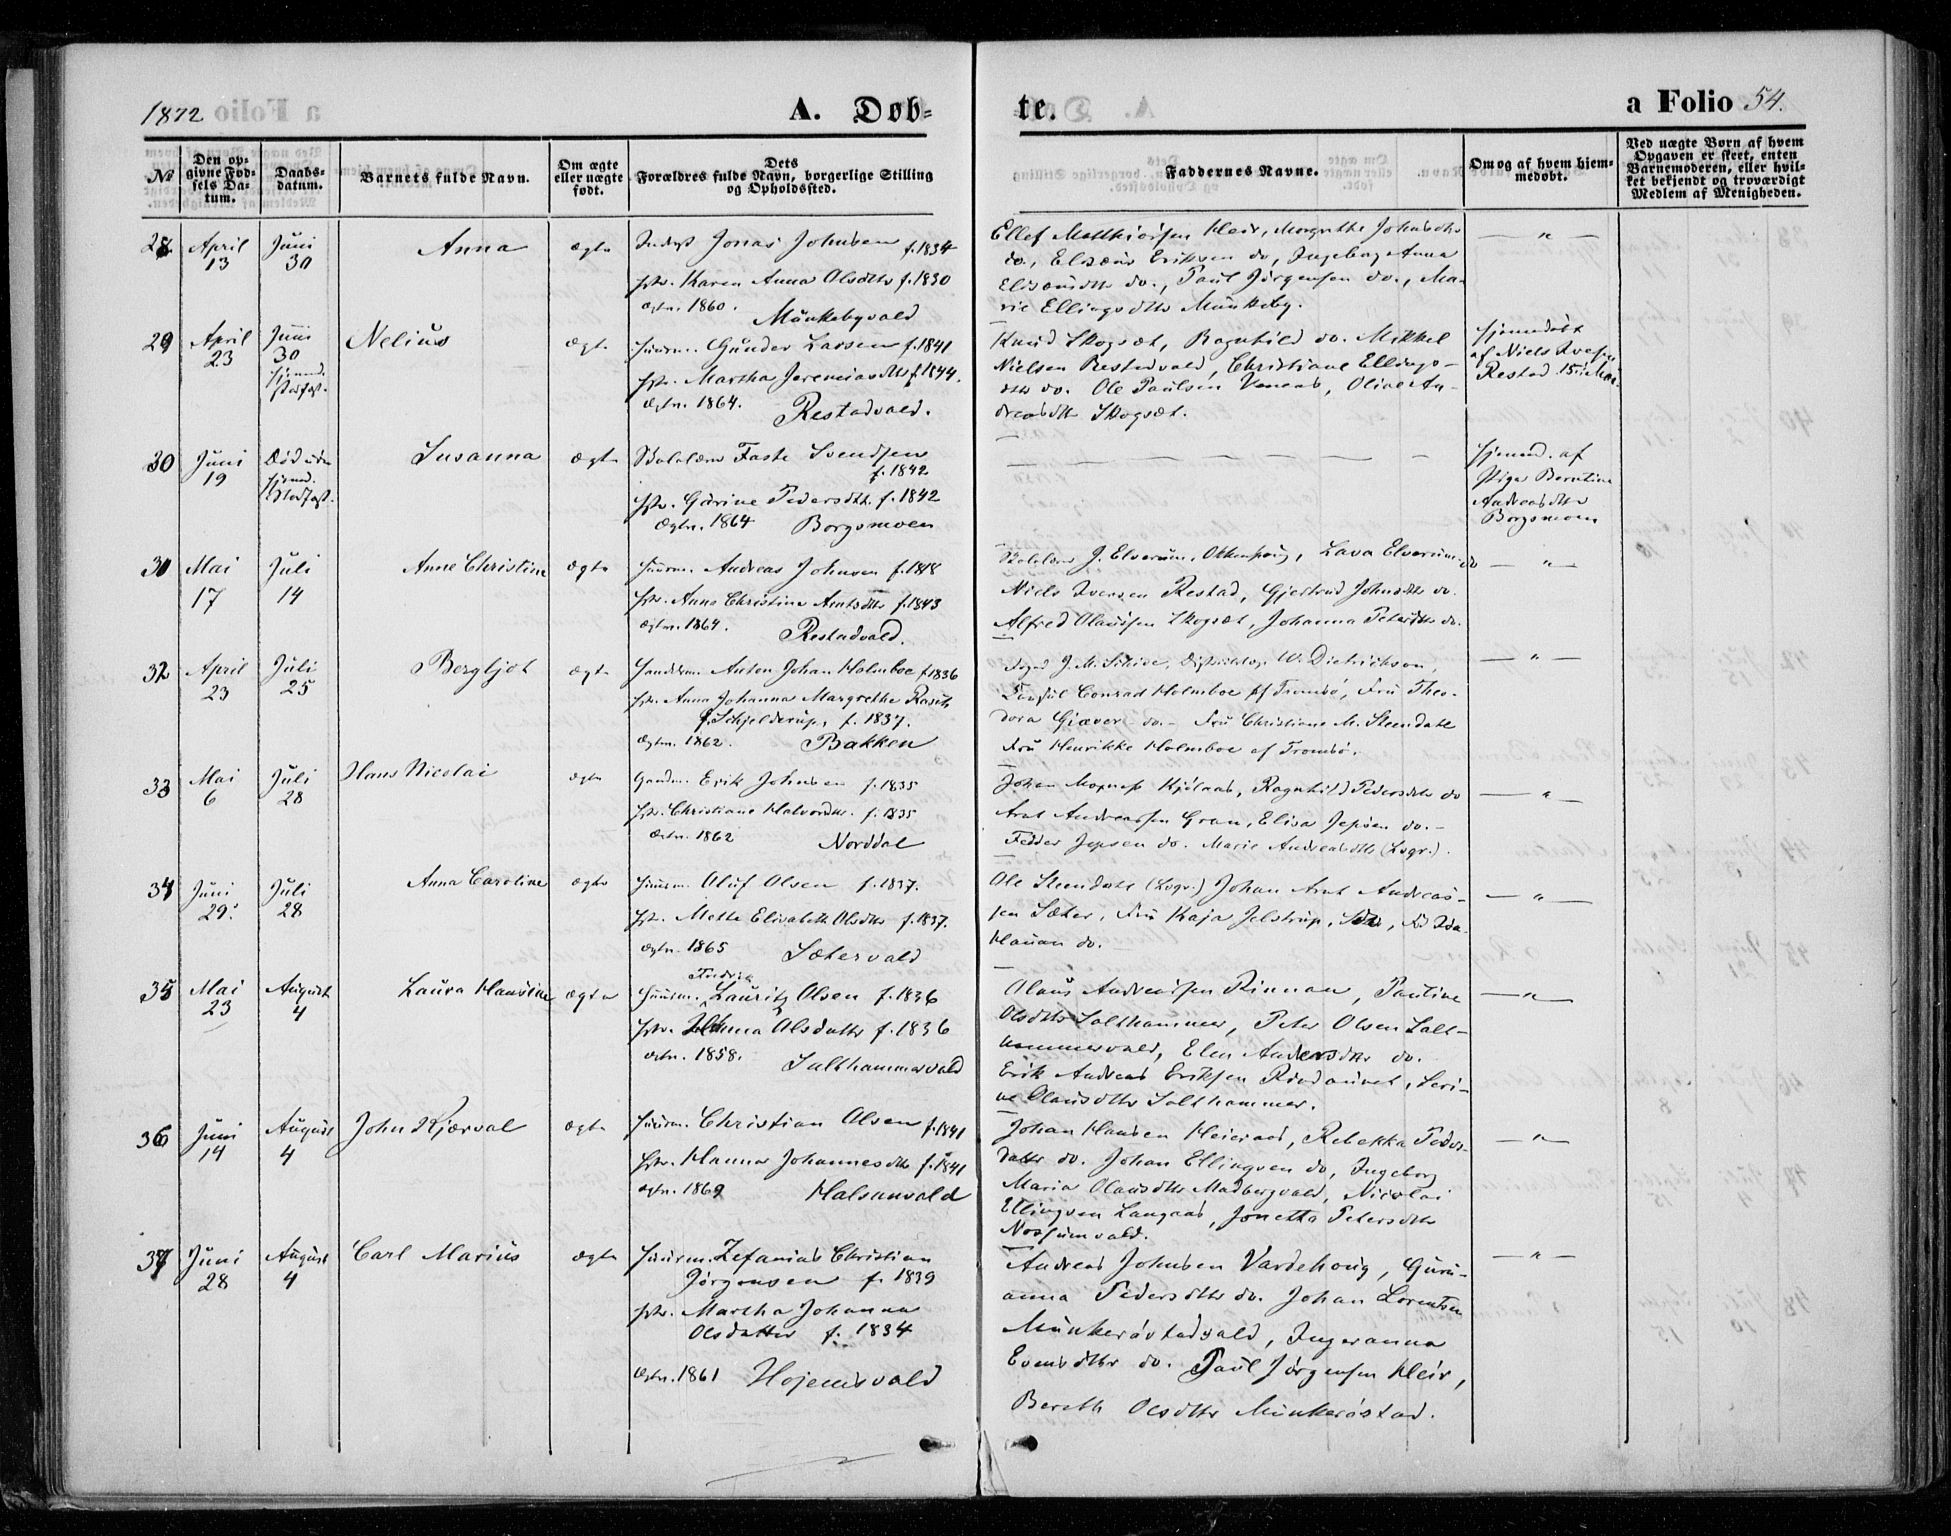 1872
A. Døb-
te.
a Folio 54.
№
Den op-
givne Fød-
sels Da-
tum.
Daabs-
datum.
Barnets fulde Navn.
Om ægte
eller uægte
født.
Dets
Forældres fulde Navn, borgerlige Stilling
og Opholdssted.
Faddernes Navne.
Om og af hvem hjem-
medøbt.
Ved uægte Børn af hvem
Opgaven er skeet, enten
Barnemoderen, eller hvil-
ket bekjendt og troværdigt
Medlem af Menigheden.
28 April 13
Juni 30
Anna
ægte
Jonas Johnsen f. 1834
Karen Anna Olsdtr f. 1830
ægtv. 1860.
Munkebyvald
Ellef Matthiassen Kleiv, Margrethe Johnsdtr
do., Elisæus Eriksen do, Ingeborg Anna
Elisæusdtr do., Paul Jørgensen do., Ma-
rie Ellingsdtr Munkeby.
— " —
29 April 23
Juni 30
Nelius
ægte
Husm. Gunder Larsen f. 1841
Martha Jeremiasdtr f. 1844.
ægtv. 1864.
Restadvald.
Knud Skogsæt, Ragnhild do. Mikkel
Nielsen Restadvald, Christiane Ellings-
dtr do. Ole Paulsen Venaas, Oline An-
dreasdtr Skogsæt.
hjemmedøbt
af Niels Iversen
Restad 15 Mai
30 Juni 19
Død
Susanna
ægte
Skolelærer Faste Svendsen
f. 1842
Gurine Pedersdtr. f. 1842
ægtv. 1864 Borgsmoen
— — — — — — —
hjemmed. af
Pige Berntine
Andreasdtr
Borgsmoen
31 Mai 17
Juli 14
Anne Christine
ægte
Husm. Andreas Johnsen f. 1818
Anne Christine Arntsdtr f. 1843
ægtv. 1864.
Restadvald.
Skolelærer J. Elverum, Okkenhaug, Lava Elverum do
Niels Iversen Restad, Gjertrud Johnsdtr do.
Alfred Olaussen Skogsæt, Johanna Petersdtr do.
— " —
32 April 23
Juli 25
Bergljot
ægte
Anton Johan Holmboe f. 1836
Anna Johanna Margrethe
f. Schjelderup, f. 1837.
ægtv. 1862.
Bakken
Foged J. M. W. Dietrichson,
Consul Conrad Holmboe af Tromsø, Fru Theo-
dora Giæver do. - Fru Christiane M. Steendahl
Fru Henrikke Holmboe af Tromsø.
— " —
33 Mai 6
Juli 28
Hans Nicolai
ægte
Gaardm. Erik Johnsen f. 1835
Christiane Halvorsdtr. f. 1835
ægtv. 1862
Norddal
Johan Kjølaas, Ragnhild Pedersdtr do
Arnt Andreassen Gran, Elisa Jepsen do. -
Fedder Jepsen do. Marie Andreasdtr
— " —
34 Juni 29.
Juli 28
Anna Caroline
ægte
Husm. Oluf Olsen f. 1837.
Mette Elisabeth Olsdtr f. 1837.
ægtv. 1865
Sætervald
Ole Steendahl Johan Arnt Andreas-
sen Sæter, Fru Kaja Jelstrup, Ida
Hauan do.
— " —
35 Mai 23
August 4
Laura Hansine
ægte
Fredrik
Husm. Lauritz Olsen f. 1836
Hanna Olsdatter f. 1836
ægtv. 1858.
Salthammervald
Olaus Andreassen Rinnan, Pauline
Olsdtr Salthammer, Peter Olsen Salt-
hammervald, Elen Andersdtr do.
Erik Andreas Eriksen, Seri-
ne Olausdtr Salthammer.
— " —
36 Juni 14
August 4
John Kjærval
ægte
Husm. Christian Olsen f. 1841
Hanna Johannesdtr f. 1841
ægtv. 1869
Halsanvald
Johan Hansen Heieraas, Rebekka Peders-
datter do. Johan Ellingsen do, Ingeborg
Maria Olausdtr Madbergvald, Nicolai
Ellingsen Langaas, Jonetta Petersdtr
Nossumvald.
— " —
37 Juni 28
August 4
Carl Marius
ægte
Husm. Zefanias Christian
Jørgensen f. 1839
Martha Johanna
Olsdatter f. 1834
ægtv. 1861 Hojemsvald
Andreas Johnsen Vardehoug, Guru-
anna Pedersdtr do. Johan Lorentsen
Munkerøstadvald, Ingeranna
Evensdtr do. Paul Jørgensen Kleiv,
Bereth Olsdtr Munkerøstad.
— " —